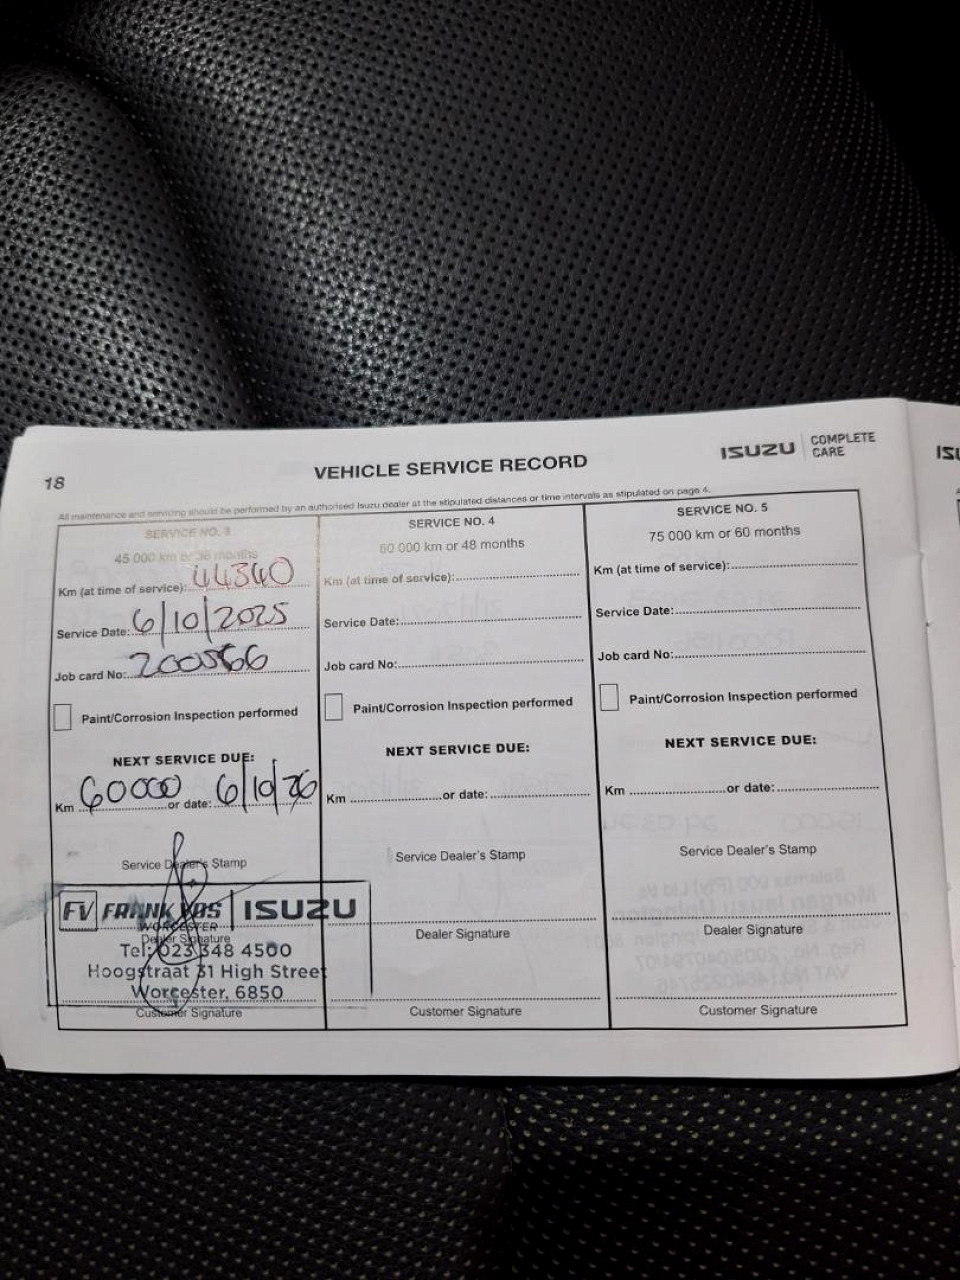 18
VEHICLE SERVICE RECORD
ISUZU COMPLETE CARE
All maintenance and servicing should be performed by an authorised Isuzu dealer at the stipulated distances or time intervals as stipulated on page 4.
SERVICE NO. 3
45 000 km or 36 months
Km (at time of service): 44340
Service Date: 6/10/2025
Job card No: 200566
Paint/Corrosion Inspection performed
NEXT SERVICE DUE:
Km 60000 or date: 6/10/26
Service Dealer's Stamp
FV FRANK VOS ISUZU
WORCESTER
Dealer Signature
Tel: 023 348 4500
Hoogstraat 31 High Street
Worcester, 6850
Customer Signature
SERVICE NO. 4
60 000 km or 48 months
Km (at time of service):
Service Date:
Job card No:
Paint/Corrosion Inspection performed
NEXT SERVICE DUE:
Km or date:
Service Dealer's Stamp
Dealer Signature
Customer Signature
SERVICE NO. 5
75 000 km or 60 months
Km (at time of service):
Service Date:
Job card No:
Paint/Corrosion Inspection performed
NEXT SERVICE DUE:
Km or date:
Service Dealer's Stamp
Dealer Signature
Customer Signature